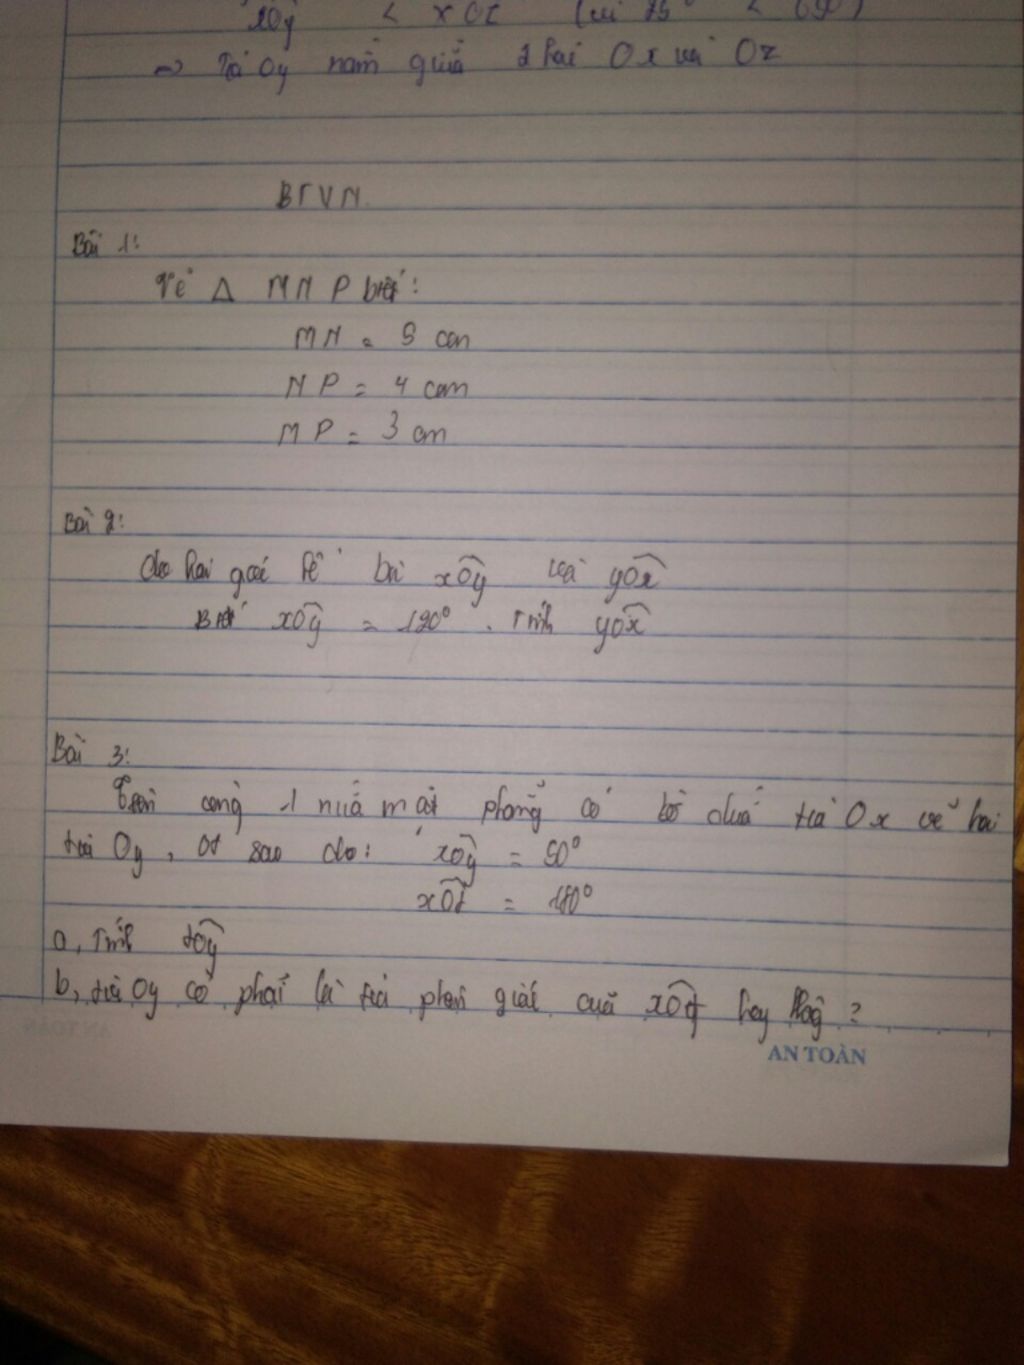 xOy < xOz (vì 75° < 150)
=> Tia Oy nằm giữa 2 hai Ox và Oz
BTVN
Bài 1:
Vẽ Δ MNP biết:
MN = 5 cm
NP = 4 cm
MP = 3 cm
Bài 2:
cho hai góc kề bù xOy và yOx
Biết xOy = 120°. Tính yOx
Bài 3:
Trên cùng 1 nửa mặt phẳng có bờ chứa tia Ox vẽ hai
tia Oy, Ot sao cho: xOy = 50°
xOt = 180°
a, Tính tOy
b, tia Oy có phải là tia phân giác của xOt hay không?
AN TOÀN